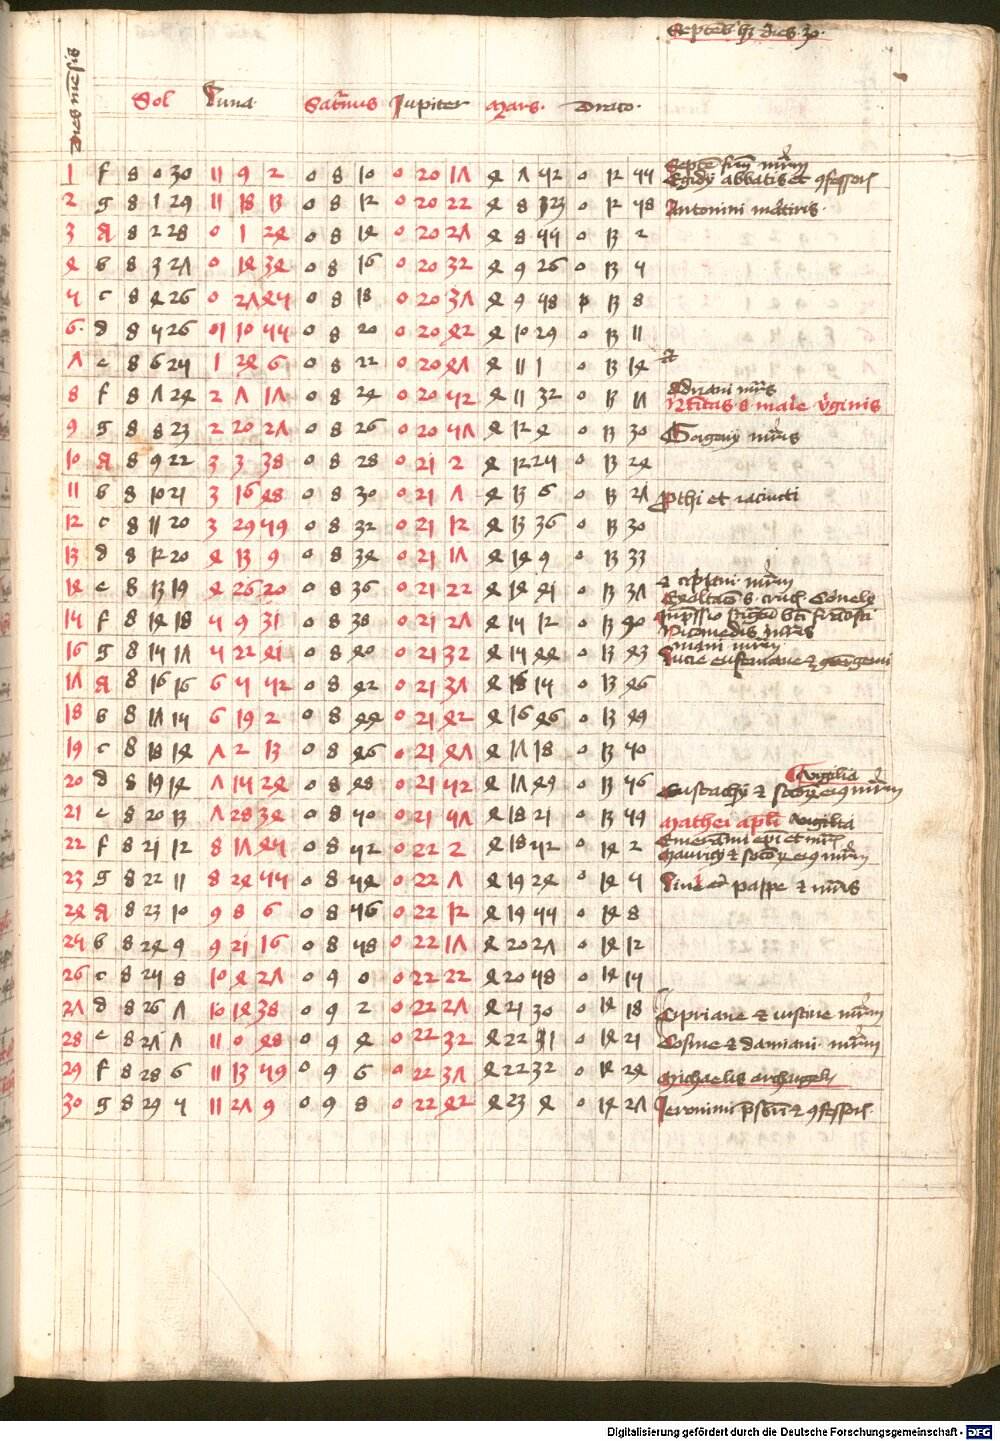 Septēb' hʒ dies 30
dies mēsis Sol Luna Saturnus Jupiter Mars Draco
1 f 8 0 30 11 9 2 0 8 10 0 20 17 4 7 52 0 12 55 Egidij abbatis et ɔfessor
2 g 8 1 29 11 18 13 0 8 12 0 20 22 4 8 23 0 12 58 Antonini martiris
3 A 8 2 28 0 1 24 0 8 14 0 20 27 4 8 55 0 13 2
4 b 8 3 27 0 14 34 0 8 16 0 20 32 4 9 26 0 13 5
5 c 8 4 26 0 27 45 0 8 18 0 20 37 4 9 58 0 13 8
6 d 8 5 26 01 10 55 0 8 20 0 20 42 4 10 29 0 13 11
7 e 8 6 25 1 24 6 0 8 22 0 20 47 4 11 1 0 13 14
8 f 8 7 24 2 7 17 0 8 24 0 20 52 4 11 32 0 13 17 Adriani mris Natitas s marie v'ginis
9 g 8 8 23 2 20 27 0 8 26 0 20 57 4 12 4 0 13 30 Gorgonij mr̄is
10 A 8 9 22 3 3 38 0 8 28 0 21 2 4 12 25 0 13 24
11 b 8 10 21 3 16 48 0 8 30 0 21 7 4 13 6 0 13 27 Prothi et iacincti
12 c 8 11 20 3 29 59 0 8 32 0 21 12 4 13 36 0 13 30
13 d 8 12 20 4 13 9 0 8 34 0 21 17 4 14 9 0 13 33
14 e 8 13 19 4 26 20 0 8 36 0 21 22 4 14 41 0 13 37 Exaltacō s. cruc Cornelij & cipriani mr̄m
15 f 8 14 18 5 9 31 0 8 38 0 21 27 4 15 12 0 13 40 Nicomedis mr̄is
16 g 8 15 17 5 22 41 0 8 40 0 21 32 4 15 44 0 13 43 Lucie eufemiane & gemīani mr̄m
17 A 8 16 16 6 5 52 0 8 42 0 21 37 4 16 15 0 13 46
18 b 8 17 15 6 19 2 0 8 44 0 21 42 4 16 46 0 13 49
19 c 8 18 14 7 2 13 0 8 46 0 21 47 4 17 18 0 13 50
20 d 8 19 14 7 15 24 0 8 48 0 21 52 4 17 49 0 13 56 Eustachij & socioꝝ eiꝰ mr̄m Vigilia
21 e 8 20 13 7 28 34 0 8 50 0 21 57 4 18 21 0 13 59 Mathei apl'i Vigilia
22 f 8 21 12 8 17 45 0 8 52 0 22 2 4 18 52 0 14 2 Emerāmi epi et mr̄is Mauricij & socioꝝ eiꝰ mr̄m
23 g 8 22 11 8 24 55 0 8 54 0 22 7 4 19 24 0 14 5 Lini pape & mr̄is
24 A 8 23 10 9 8 6 0 8 56 0 22 12 4 19 55 0 14 8
25 b 8 24 9 9 21 16 0 8 58 0 22 17 4 20 27 0 14 12
26 c 8 25 8 10 4 27 0 9 0 0 22 22 4 20 58 0 14 15
27 d 8 26 7 10 14 38 0 9 2 0 22 27 4 21 30 0 14 18 Cipriane & iustine mr̄m
28 e 8 27 7 11 0 48 0 9 4 0 22 32 4 22 31 0 14 21 Cosme & damiani mr̄m
29 f 8 28 6 11 13 59 0 9 6 0 22 37 4 22 32 0 14 24 Michaelis archangeli
30 g 8 29 5 11 27 9 0 9 8 0 22 42 4 23 4 0 14 27 Jeronimi prs̄bri & ɔfessor
Digitalisierung gefördert durch die Deutsche Forschungsgemeinschaft - DFG